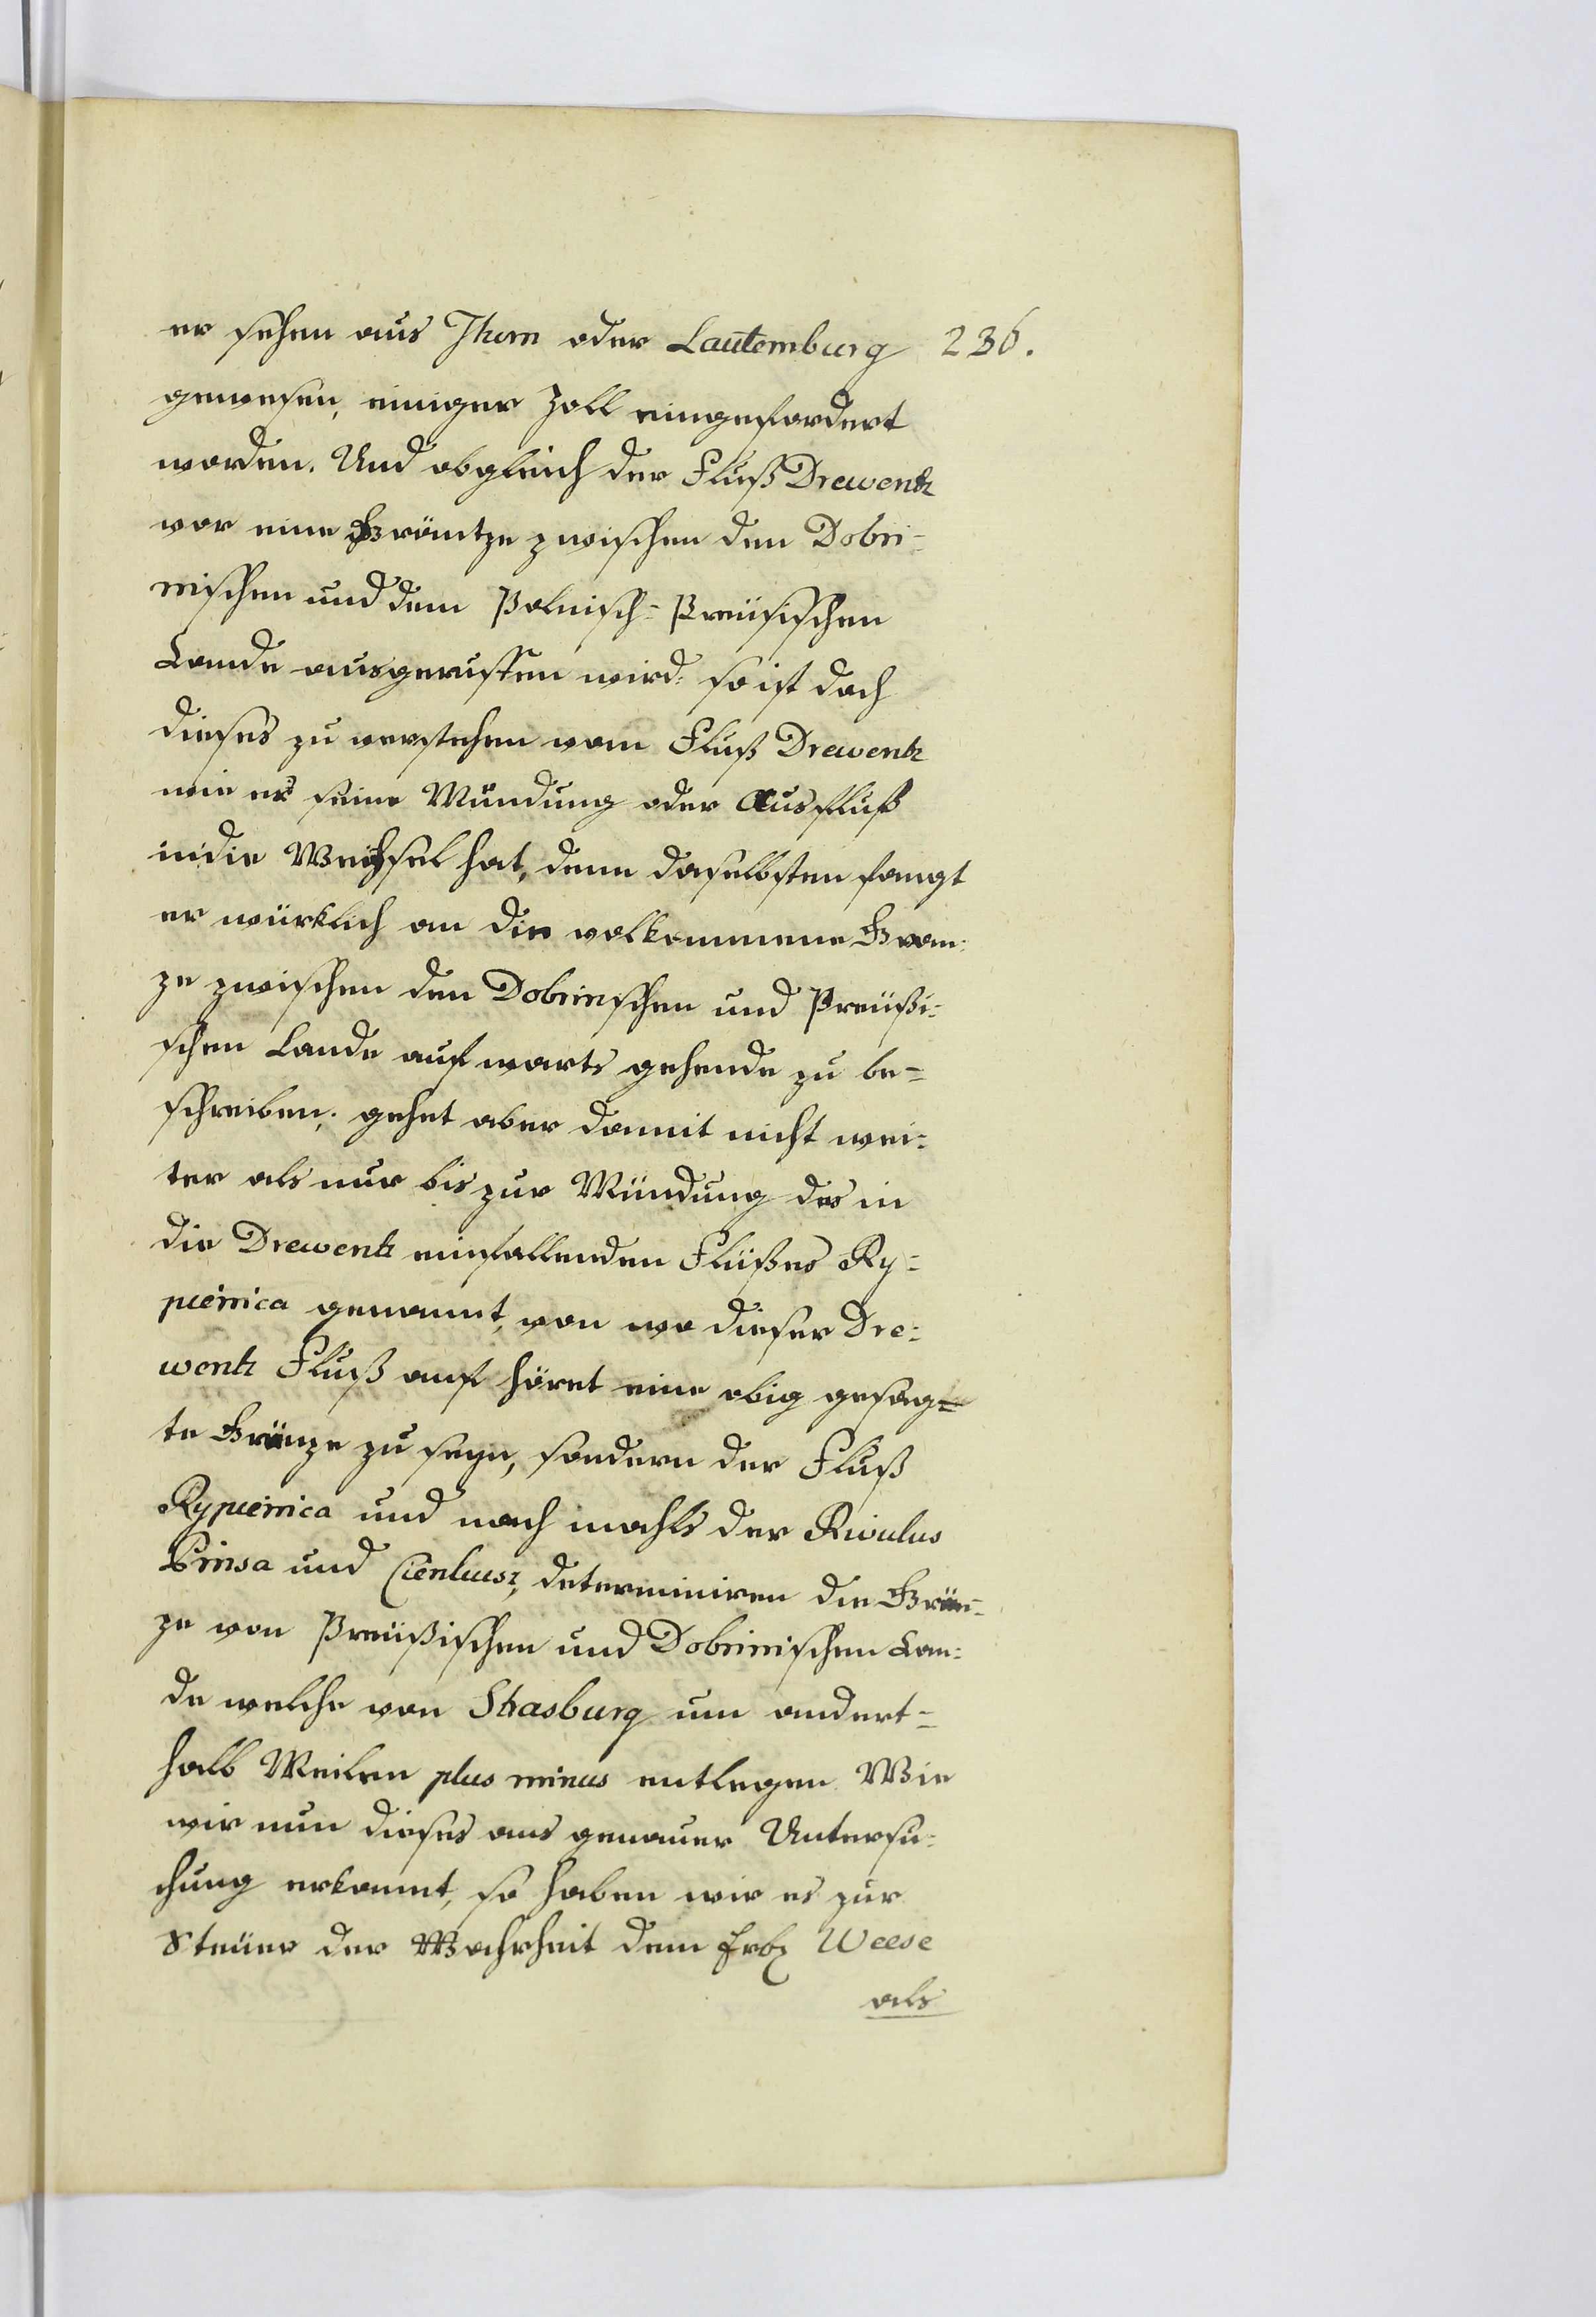 er sehen aus Thorn oder Lautemburg 236.
gewesen, einiger Zoll eingefordert
worden. Und obgleich der Fluß Drewentz
vor eine Gräntze zwischen den Dobri-
nischen und dem Polnisch-Preüsischen
Lande ausgeruffen wird: so ist doch
dieses zu verstehen vom Fluß Drewentz
wie er seine Mündung oder Ausfluß
in die Weichsel hat, denn daselbsten fangt
er würklich an die vollkommene Gran-
ze zwischen den Dobrinschen und Preüßi-
schen Lande aufwarts gehende zu be-
schreiben; gehet aber damit nicht wei-
ter als nur bis zur Mündung des in
die Drewentz einfallenden Flüßes Ry-
pienica genannt, von wo dieser Dre-
wentz Fluß auf höret eine obig gesag-
te Gränze zu seyn, sondern der Fluß
Rypienica und nach mahls der Rivulus
Pinsa und Cienkusz, determiniren die Grän-
ze von Preüßischen und Dobrinischen Lan-
de welche von Strasburg um andert-
halb Meilen plus minus entlegen. Wie
wir nun dieses aus genauer Untersu-
chung erkannt, so haben wir es zur
Steüer der Wahrheit dem Weese
als